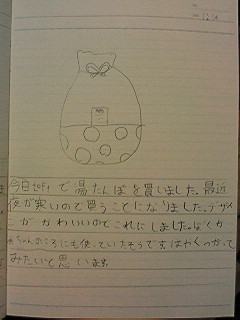 今日ﾋﾟｵﾆｨで湯たんぽを買いました。最近
夜が寒いので買うことになりました。デザイン
がかわいいのでこれにしました。ぼくが
赤ちゃんのころにも使っていたそうです。はやくつかって
みたいと思います。